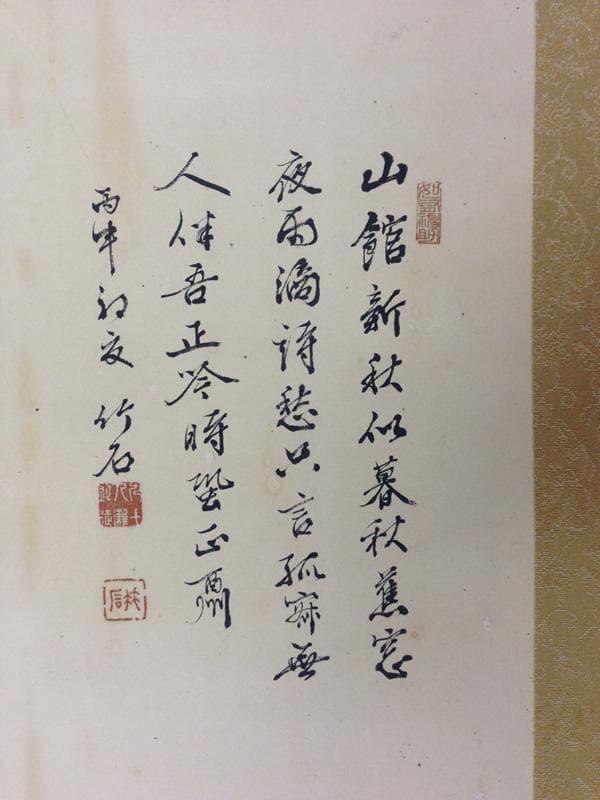 山館新秋似暮秋蕉窓
夜雨滴詩愁只言孤寂無
人伴吾正吟時蛩正酬
丙午初夏 竹石